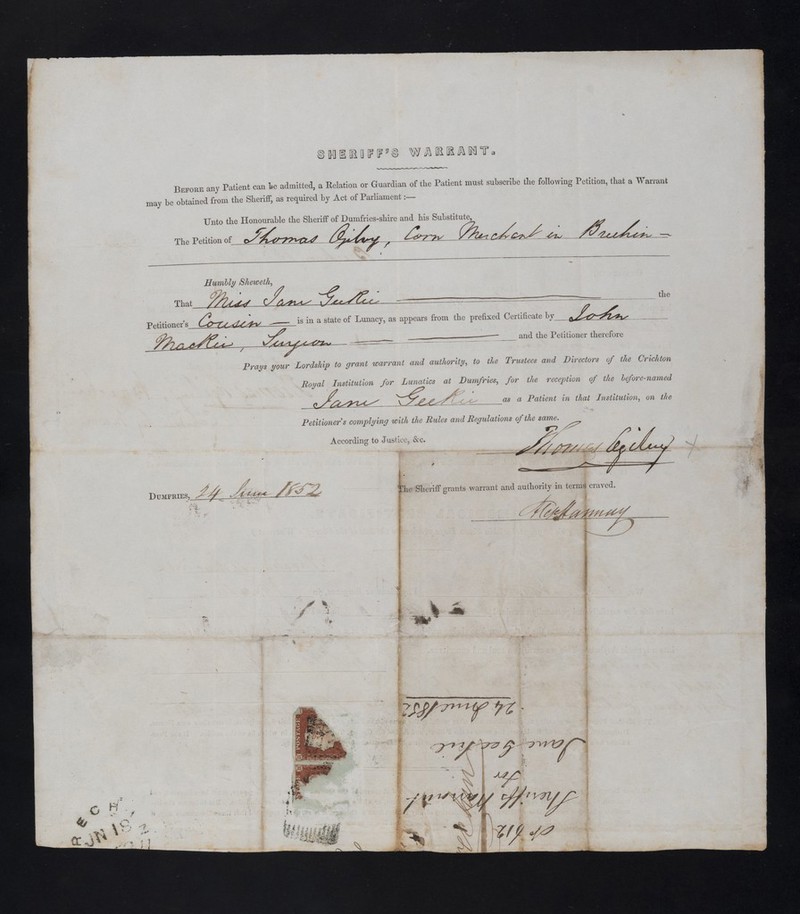 SHERIFF'S WARRANT.
BEFORE any Patient can be admitted, a Relation or Guardian of the Patient must subscribe the following Petition, that a Warrant
may be obtained from the Sheriff, as required by Act of Parliament :—
Unto the Honourable the Sheriff of Dumfries-shire and his Substitute,
The Petition of Thomas Ogilvy, Corn Merchant in Brechin —
Humbly Sheweth,
That Miss Jane Geekie — the
Petitioner's Cousin — is in a state of Lunacy, as appears from the prefixed Certificate by John
Mackie, Surgeon — — and the Petitioner therefore
Prays your Lordship to grant warrant and authority, to the Trustees and Directors of the Crichton
Royal Institution for Lunatics at Dumfries, for the reception of the before-named
Jane Geekie as a Patient in that Institution, on the
Petitioner's complying with the Rules and Regulations of the same.
According to Justice, &c.
Thomas Ogilvy
DUMFRIES, 24 June 1852
The Sheriff grants warrant and authority in terms craved.
No 612
Sheriff's Warrant
for
Jane Geekie
24 June 1852
POSTAGE
BRECH
JN 18